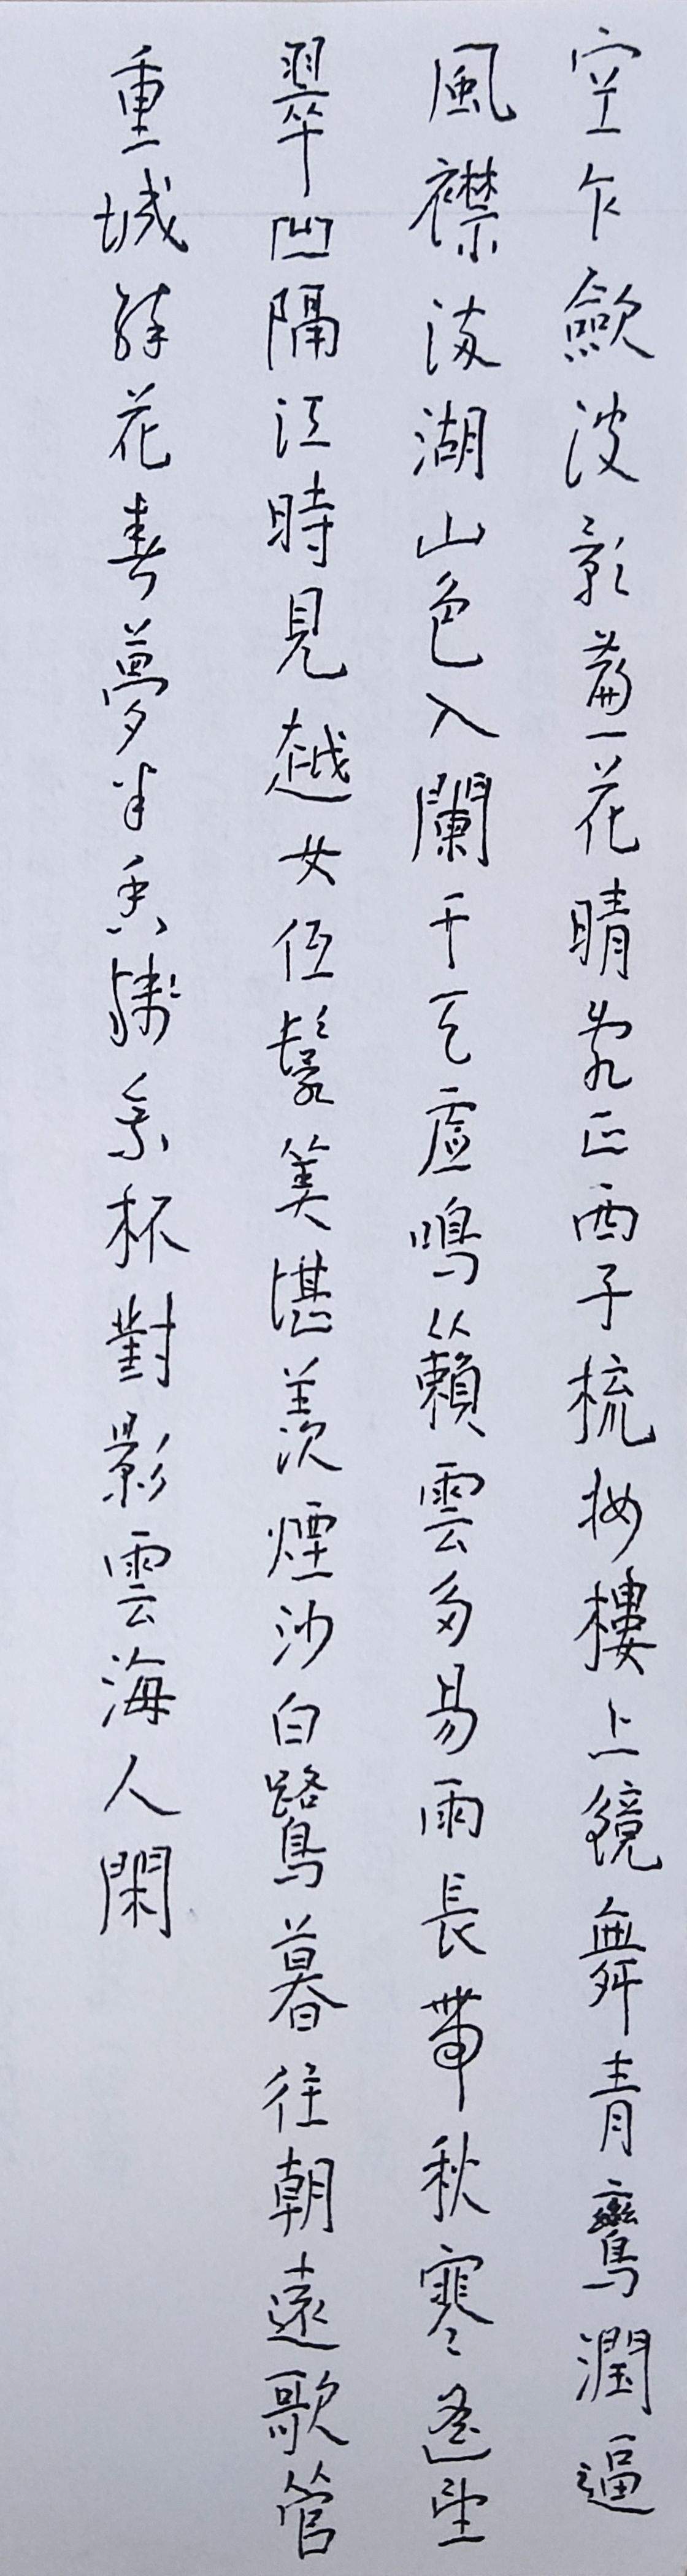 空乍斂波影簾花晴亂正西子梳妝樓上鏡舞青鸞潤逼
風襟滿湖山色入闌干天虛鳴籟雲多易雨長帶秋寒遙望
翠凹隔江時見越女低鬟算堪羨煙沙白鷺暮往朝還歌管
重城醉花春夢半香殘乘杯對影雲海人閑